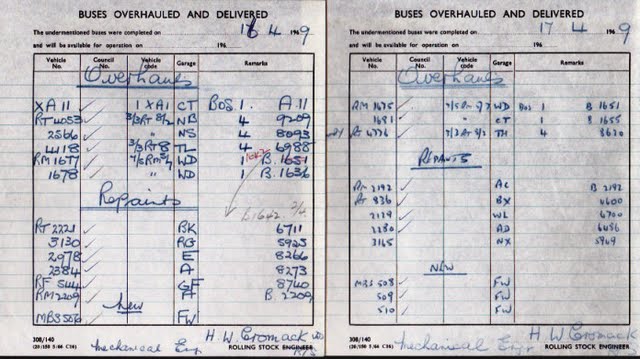 BUSES OVERHAULED AND DELIVERED
The undermentioned buses were completed on 16 4 1969
and will be available for operation on 196
Vehicle No. Council No. Vehicle code Garage Remarks
Overhauls
XA 11 ✓ 1 XA1 CT BOS 1. A. 11
RT 4053 ✓ 2/3 RT 8/2 NB 4 9209
2566 ✓ " NS 4 8093
4418 ✓ 3/3 RT 8 TL 4 6988
RM 1677 ✓ WD 1 B. 1651
1678 ✓ " WD 1 B. 1636
Repaints
B1642
RT 2221 ✓ BK 6711
3130 ✓ RG 5925
2078 ✓ E 8266
2384 ✓ A 8273
RF 544 ✓ GF 8740
RM 2209 ✓ A B. 2209
New
MBS 506 ✓ FW
308/140
H. W. Cromack
Mechanical Engr. ROLLING STOCK ENGINEER
BUSES OVERHAULED AND DELIVERED
The undermentioned buses were completed on 17 4 1969
and will be available for operation on 196
Vehicle No. Council No. Vehicle code Garage Remarks
Overhauls
RM 1675 ✓ WD BOS 1 B 1651
1681 ✓ " CT 1 B 1655
RT 4736 ✓ TH 4 8620
REPAINTS
RM 2192 ✓ AC B 2192
RT 836 ✓ BX 4600
2119 ✓ WL 6700
2280 ✓ AD 6656
3165 ✓ NX 5969
NEW
MBS 508 ✓ FW
509 ✓ FW
510 ✓ FW
308/140
H W Cromack
Mechanical Engr ROLLING STOCK ENGINEER